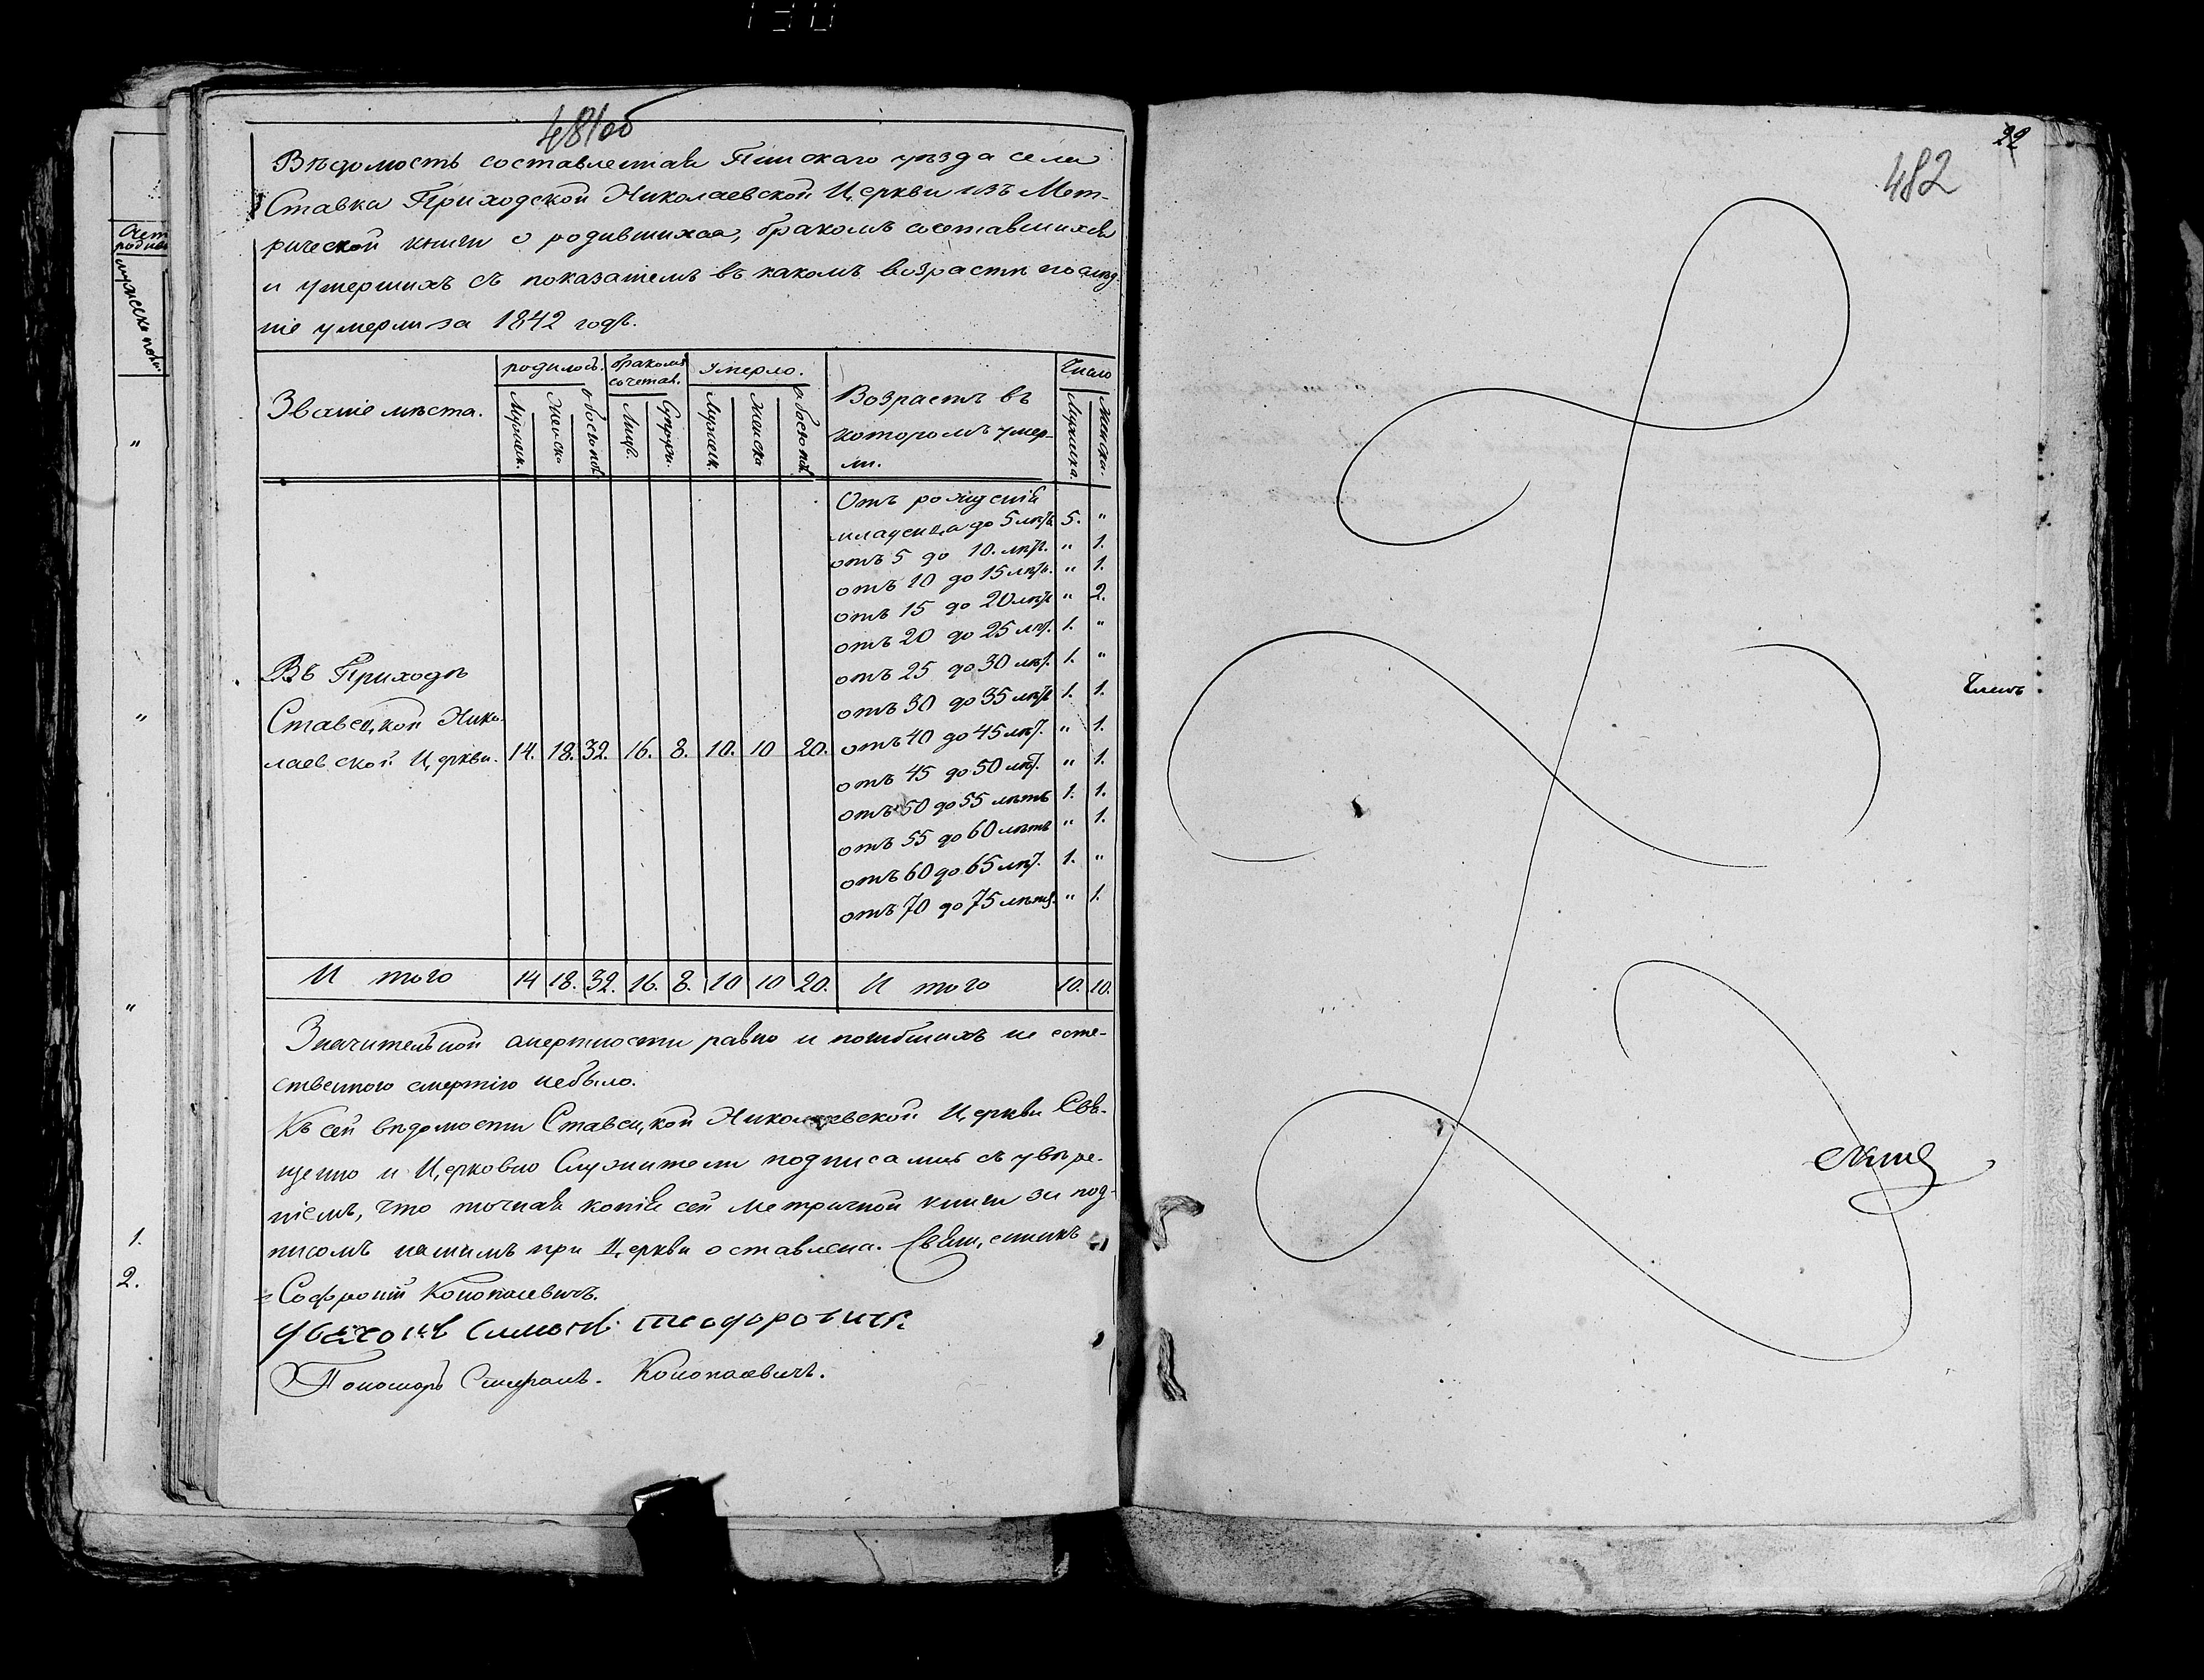 481об
Вѣдомость составленная Пинскаго уѣзда села
Ставка Приходской Николаевской Церкви изъ Мет-
рической книги о родившихся, бракомъ сочетавшихся
и умершихъ съ показаніемъ въ какомъ возрастѣ послѣд-
ніе умерли за 1842 годъ.
Званіе мѣста. родилось. бракомъ сочетав. умерло. Возрастъ въ которомъ умер-ли. Число
Мужеск. Женска обоего пол. Лицъ. Супруж. Мужеск. Женска обоего пол. Мужеска. Женска.
Отъ рожденія
младенца до 5 лѣтъ 5. "
отъ 5 до 10. лѣт. " 1.
отъ 10 до 15 лѣт. " 1.
отъ 15 до 20 лѣтъ " 2.
отъ 20 до 25 лѣт. 1. "
отъ 25 до 30 лѣт. 1. "
отъ 30 до 35 лѣтъ 1. 1.
отъ 40 до 45 лѣт. " 1.
отъ 45 до 50 лѣт. " 1.
отъ 50 до 55 лѣтъ 1. 1.
отъ 55 до 60 лѣтъ " 1.
отъ 60 до 65 лѣт. 1. "
отъ 70 до 75 лѣтъ. " 1.
Въ Приходѣ
Ставецкой Нико-
лаевской Церкви. 14. 18. 32. 16. 8. 10. 10 20.
И того 14 18. 32. 16. 8. 10 10 20. И того 10. 10.
Значительной смертности равно и погибшихъ не есте-
ственного смертію небыло.
Къ сей вѣдомости Ставецкой Николаевской Церкви Свя-
щенно и Церковно Служители подписались съ увѣре-
ніемъ, что точная копія сей метричной книги за под-
писомъ нашимъ при Церкви оставлена. Священникъ
Софроній Конопасевичъ.
Симонъ Теодоровичъ
Пономарь Стефанъ. Конопасевичъ.
мужеско пола
"
"
"
1.
2.
482
Членъ